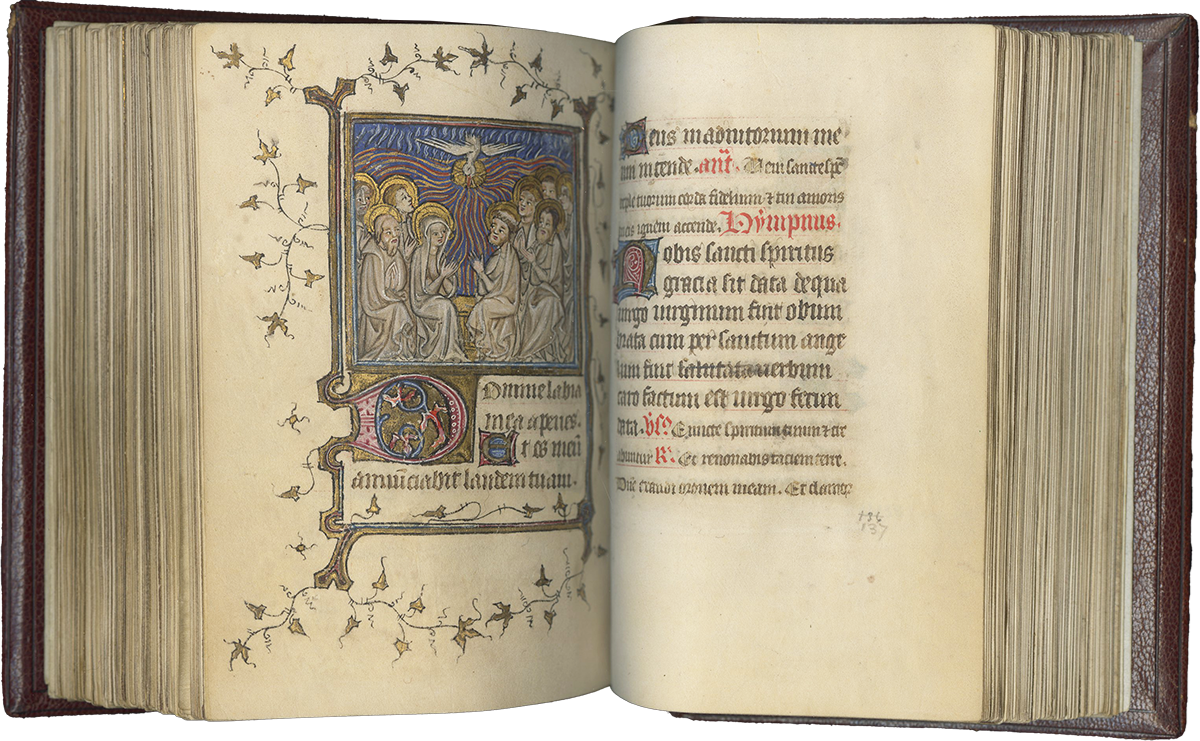 Domine labia
mea aperies.
Et os meū
annūciabit laudem tuam.
Deus in adiutorium me
um intende. añ. Veni sancte spē
reple tuorum corda fidelium & tui amoris
in eis ignem accende. Hympnus.
Nobis sancti spiritus
gracia sit data de qua
uirgo uirginum fuit obum
brata cum per sanctum ange
lum fuit salutata uerbum
caro factum est uirgo fecun
data. V̄s. Emitte spiritum tuum & cre
abuntur R̄. Et renouabis faciem terre.
Dn̄e exaudi orōnem meam. Et clamor
136
137